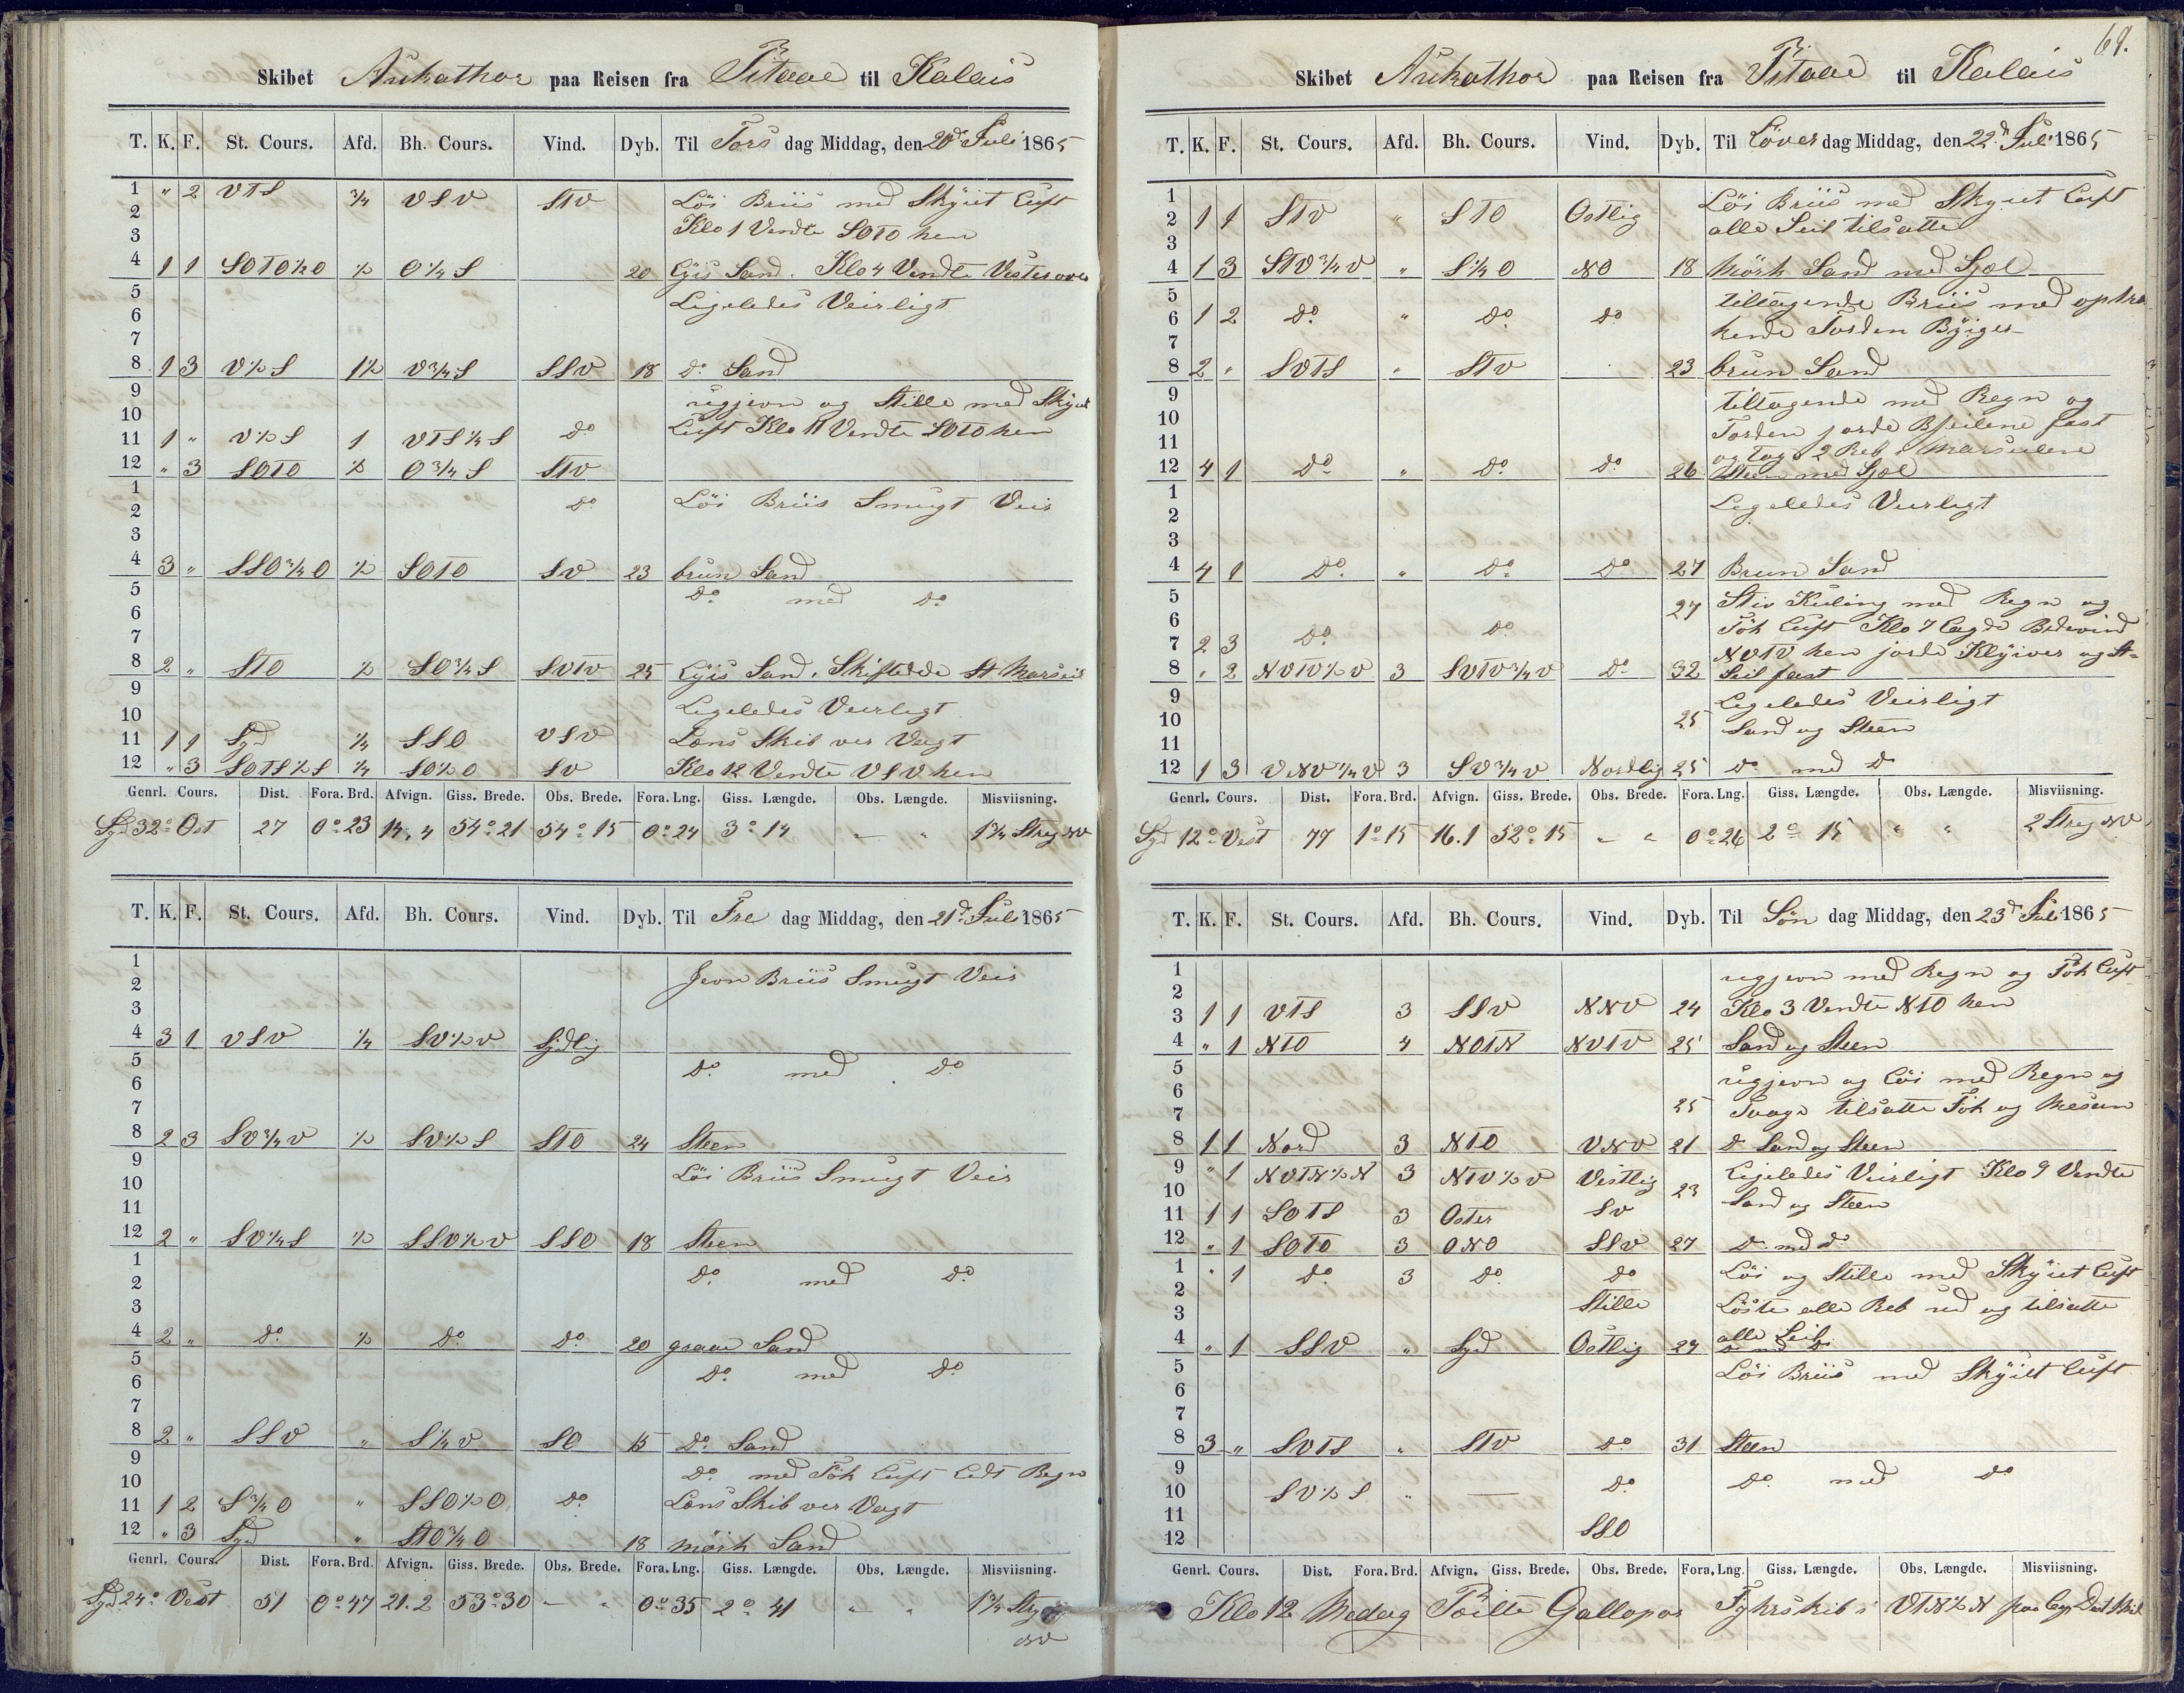 Skibet Aukathor paa Reisen fra Pitaae til Kalais
T. K. F. St. Cours. Afd. Bh. Cours. Vind. Dyb. Til Tors dag Middag, den 20d Juli 1865
1 " 2 VTS 3/4 VSV STV Löi Briis med Skyiet Luft
2
3 Klo 1 Vendte SOTO hen
4 1 1 SOTO½O ½ O¼S 20 Lÿis Sand. Klo 4 Vendte Vester over
5 Ligeledes Veirligt
6
7
8 1 3 V½S 1½ V¾S SSV 18 do Sand
9 ugjevn og Stille med Skyiet
10
11 1 " V½S 1 VTS¼S do Luft Klo 11 Vendte SOTO hen
12 " 3 SOTO ½ O¾S STV
1 do Löi Briis Smugt Veir
2
3
4 3 " SSO¾O ½ SOTO SV 23 brun Sand
5 do med do
6
7
8 2 " STO ½ SO¾S SVTV 25 Lÿis Sand. Skiftede St Marseil
9 Ligeledes Veirligt
10
11 1 1 Syd ¼ SSO VSV Læns Skib ver Vagt
12 " 3 SOTS½S ¼ SO½O SV Klo 12 Vendte VSV hen
Genrl. Cours. Dist. Fora. Brd. Afvign. Giss. Brede. Obs. Brede. Fora. Lng. Giss. Længde. Obs. Længde. Misviisning.
Syd 32° Ost 27 0°23 14,4 54°21 54°15 0°24 3°14 " " 1¾ Streg NV
T. K. F. St. Cours. Afd. Bh. Cours. Vind. Dyb. Til Fre dag Middag, den 21d Juli 1865
1 Jevn Briis Smugt Veir
2
3
4 3 1 VSV ¼ SV½V Sydlig
5 do med do
6
7
8 2 3 SV¾V ½ SV½S STO 24 Steen
9 Löi Briis Smugt Veir
10
11
12 2 " SV¼S ½ SSV½V SSO 18 Steen
1 do med do
2
3
4 2 " do ½ do do 20 graae Sand
5 do med do
6
7
8 2 " SSV " S¼V SO 15 do Sand
9 do med Tök Luft Lidt Regn
10
11 1 2 S¾O " SSO½O do Læns Skib ver Vagt
12 " 3 Syd " STO¾O 18 mörk Sand
Genrl. Cours. Dist. Fora. Brd. Afvign. Giss. Brede. Obs. Brede. Fora. Lng. Giss. Længde. Obs. Længde. Misviisning.
Syd 24° Vest 51 0°47 21.2 53°30 " " 0°35 2°41 " " 1¾ Streg
NV
69.
Skibet Aukathor paa Reisen fra Pitaae til Kalais
T. K. F. St. Cours. Afd. Bh. Cours. Vind. Dyb. Til Löver dag Middag, den 22d Juli 1865
1 Löi Briis med Skyiet Luft
2 1 1 STV " STO Ostlig alle Seil tilsatte
3
4 1 3 STV¾V " S¼O NO 18 Mörk Sand med Sjæl
5 tiltagende Briis med optræ
6 1 2 do " do do kende Torden Byiger
7
8 2 " SVTS " STV 23 brun Sand
9 tiltagende med Regn og
10 Torden jorde Bseilene fast
11 og tog 2 Reb i Marseilene
12 4 1 do " do do 26 Steen med Sjæl
1 Ligeledes Veirligt
2
3
4 4 1 do " do do 27 Brun Sand
5 27 Stiv Kuling med Regn og
6 Tök Luft Klo 7 lagde Bidevind
7 2 3 do do NVTV hen jorde Klÿiver og St=
8 " 2 NVTV½V 3 SVTV¾V do 32 Seil fast
9 Ligeledes Veirligt
10 25 Sand og Steen
11
12 1 3 VNV¼V 3 SV¾V Nordlig 25 do med do
Genrl. Cours. Dist. Fora. Brd. Afvign. Giss. Brede. Obs. Brede. Fora. Lng. Giss. Længde. Obs. Længde. Misviisning.
Syd 12° Vest 77 1°15 16.1 52°15 " " 0°26 2°15 " " 2 Streg NV
T. K. F. St. Cours. Afd. Bh. Cours. Vind. Dyb. Til Søn dag Middag, den 23d Juli 1865
1 ugjevn med Regn og Tök Luft
2
3 1 1 VTS 3 SSV NNV 24 Klo 3 Vendte NTO hen
4 " 1 NTO 4 NOTN NVTV 25 Sand og Steen
5 ugjevn og Löi med Regn og
6
7 25 Taage tilsatte Fok og Mesan
8 1 1 Nord 3 NTO VNV 21 do Sand og Steen
9 " 1 NVTN½N 3 NTV½V Vestlig Ligeledes Veirligt Klo 9 Vendte
10 23 Sand og Steen
11 1 1 SOTS 3 Oster SV
12 " 1 SOTO 3 ONO SSV 27 do med do
1 " 1 do 3 do do Löi og Stille med Skÿiet Luft
2 Stille Löste alle Reb ud og tilsatte
3
4 " 1 SSV " Syd Ostlig 29 alle Seil
do med do
5 Löi Briis med Skÿiet Luft
6
7
8 3 " SVTS " STV do 31 Steen
9 do med do
10 SV½S " — do
11
12 SSO
Genrl. Cours. Dist. Fora. Brd. Afvign. Giss. Brede. Obs. Brede. Fora. Lng. Giss. Længde. Obs. Længde. Misviisning.
Klo 12 Medag Peilte Gallopor Fyhrskib i VTN½N paa Lag Dist